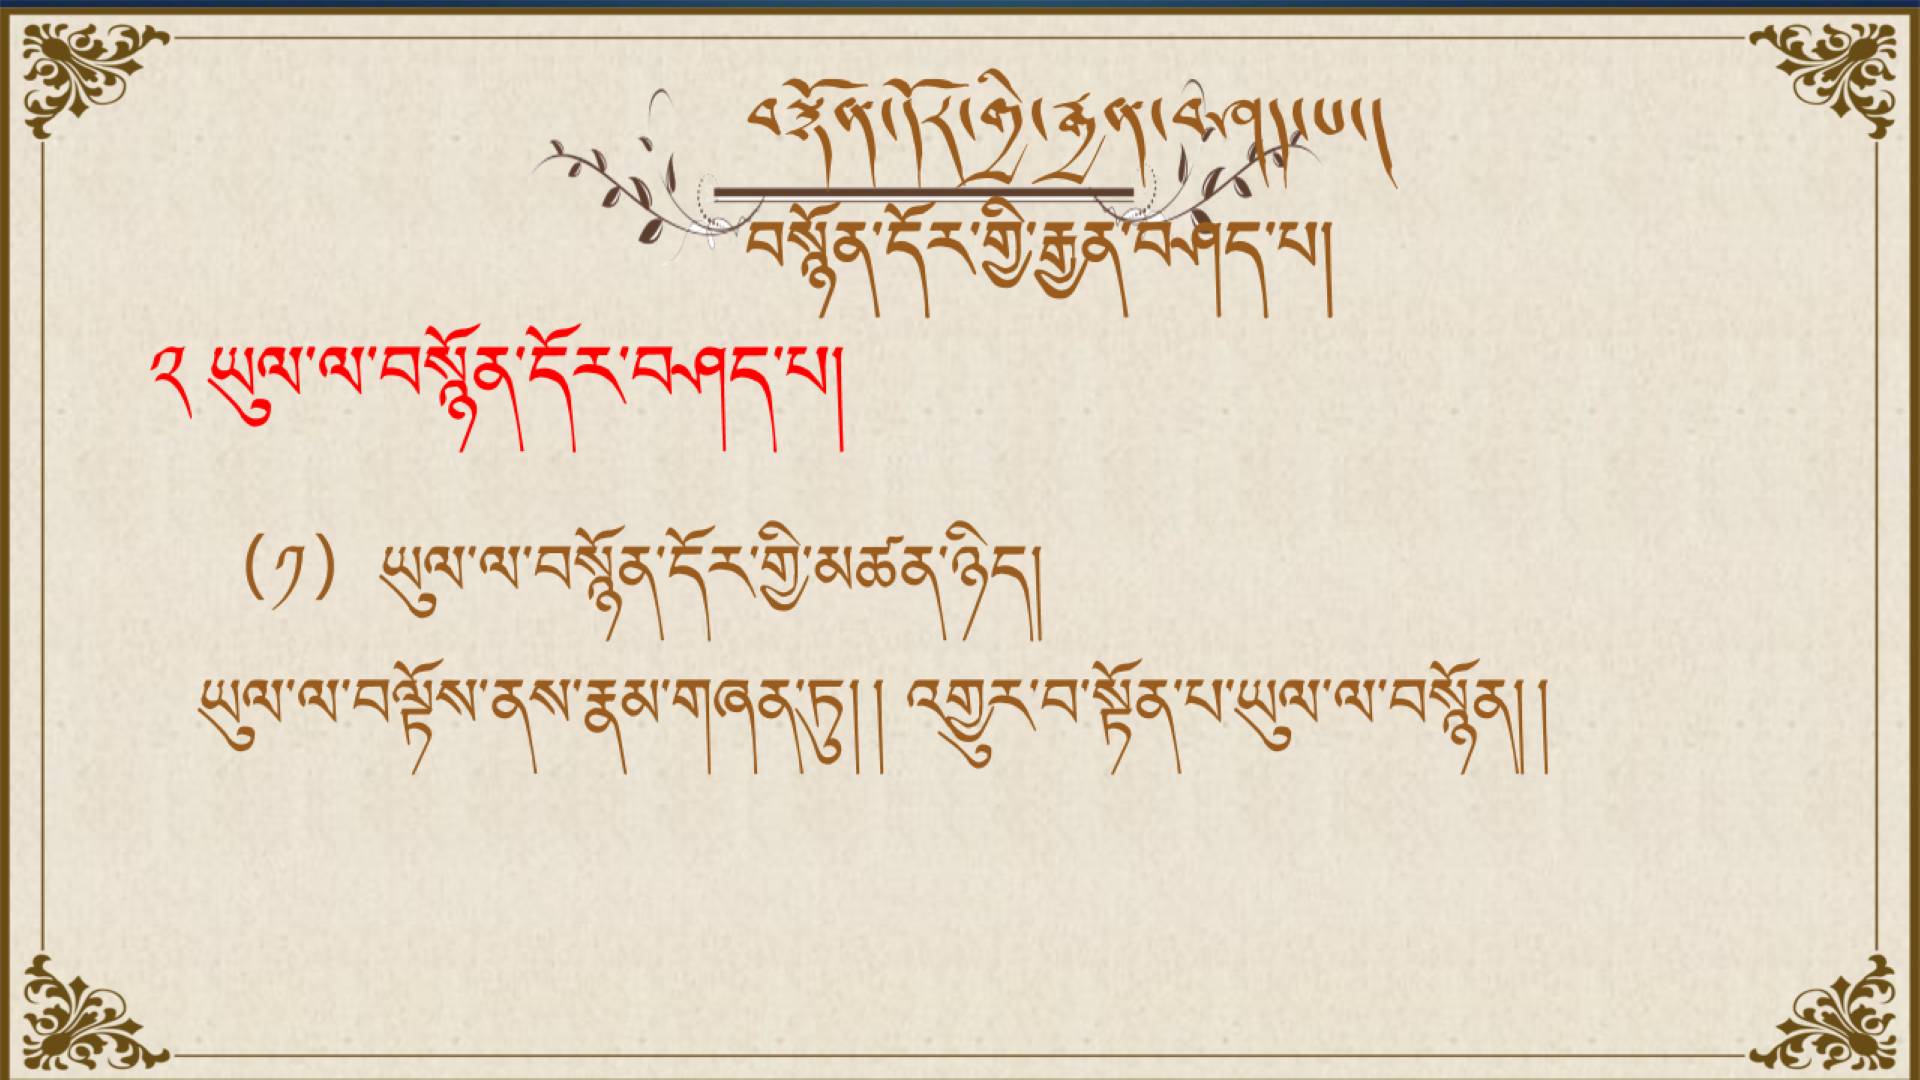 བསྙོན་དོར་གྱི་རྒྱན་བཤད་པ།
བསྙོན་དོར་གྱི་རྒྱན་བཤད་པ།
༢ ཡུལ་ལ་བསྙོན་དོར་བཤད་པ།
(༡) ཡུལ་ལ་བསྙོན་དོར་གྱི་མཚན་ཉིད།
ཡུལ་ལ་བལྟོས་ནས་རྣམ་གཞན་ཏུ།། འགྱུར་བ་སྟོན་པ་ཡུལ་ལ་བསྙོན།།